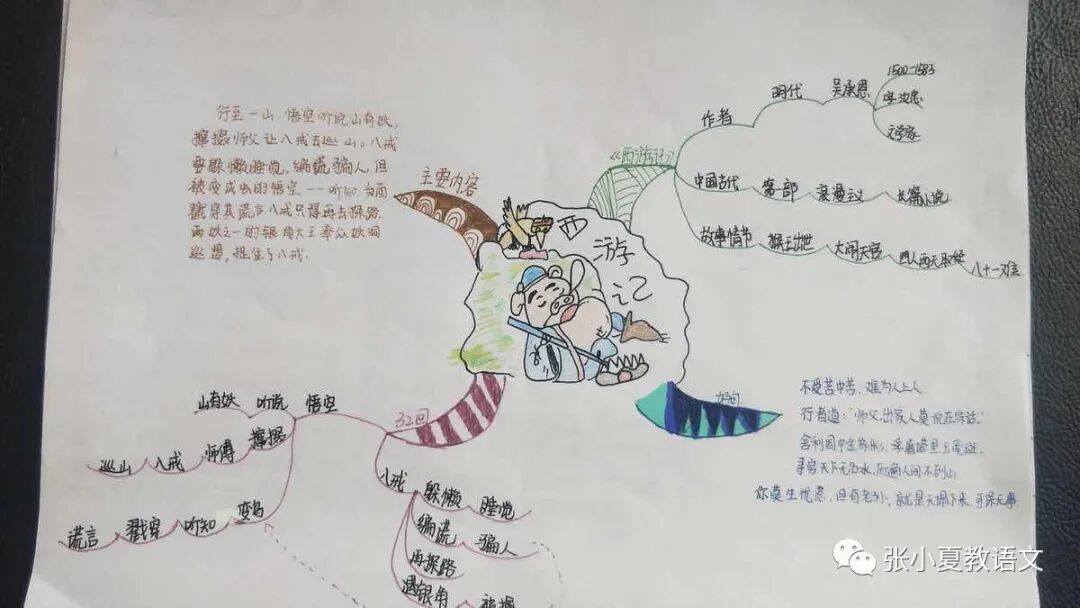 行至一山.悟空听说山有妖,
撺掇师父让八戒去巡山。八戒
要躲懒睡觉,编谎骗人,但
被变成虫的悟空一一听知.当面
戳穿其谎言八戒只得再去探路.
两妖之一的银角大王率众妖洞
巡逻,捉住了八戒.
主要内容
西
游
记
《西游记》
作者
明代
吴承恩
1500-1583
字汝忠
文学家
中国古代
第一部
浪漫主义
长篇小说
故事情节
猴王出世
大闹天宫
四人西天取经
八十一难
32回
悟空
听说
山有妖
撺掇
师傅
八戒
巡山
变鸟
听知
戳穿
谎言
八戒
躲懒
睡觉
编谎
骗人
再探路
遇银角
被捉
不受苦中苦、难为人上人
行者道:"师父,出家人莫说在家话."
舍利国中金象彩,浮屠塔里玉毫斑.
寻穷天下无名水,历遍人间不到山
你莫生忧虑,但有老孙,就是天塌下来,可保无事
张小夏教语文